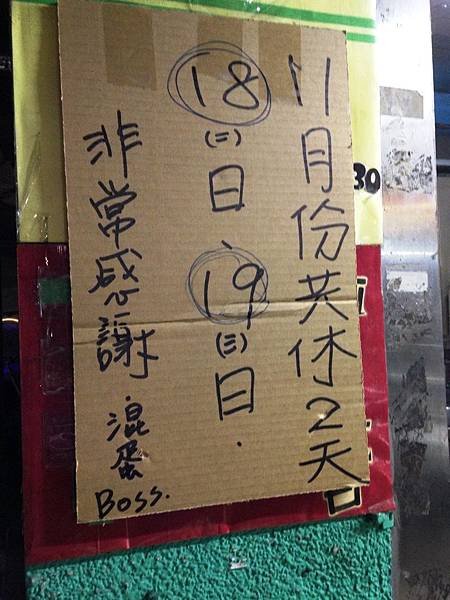 11月份共休2天
18(二)日、19(三)日.
非常感謝 混蛋Boss.
30